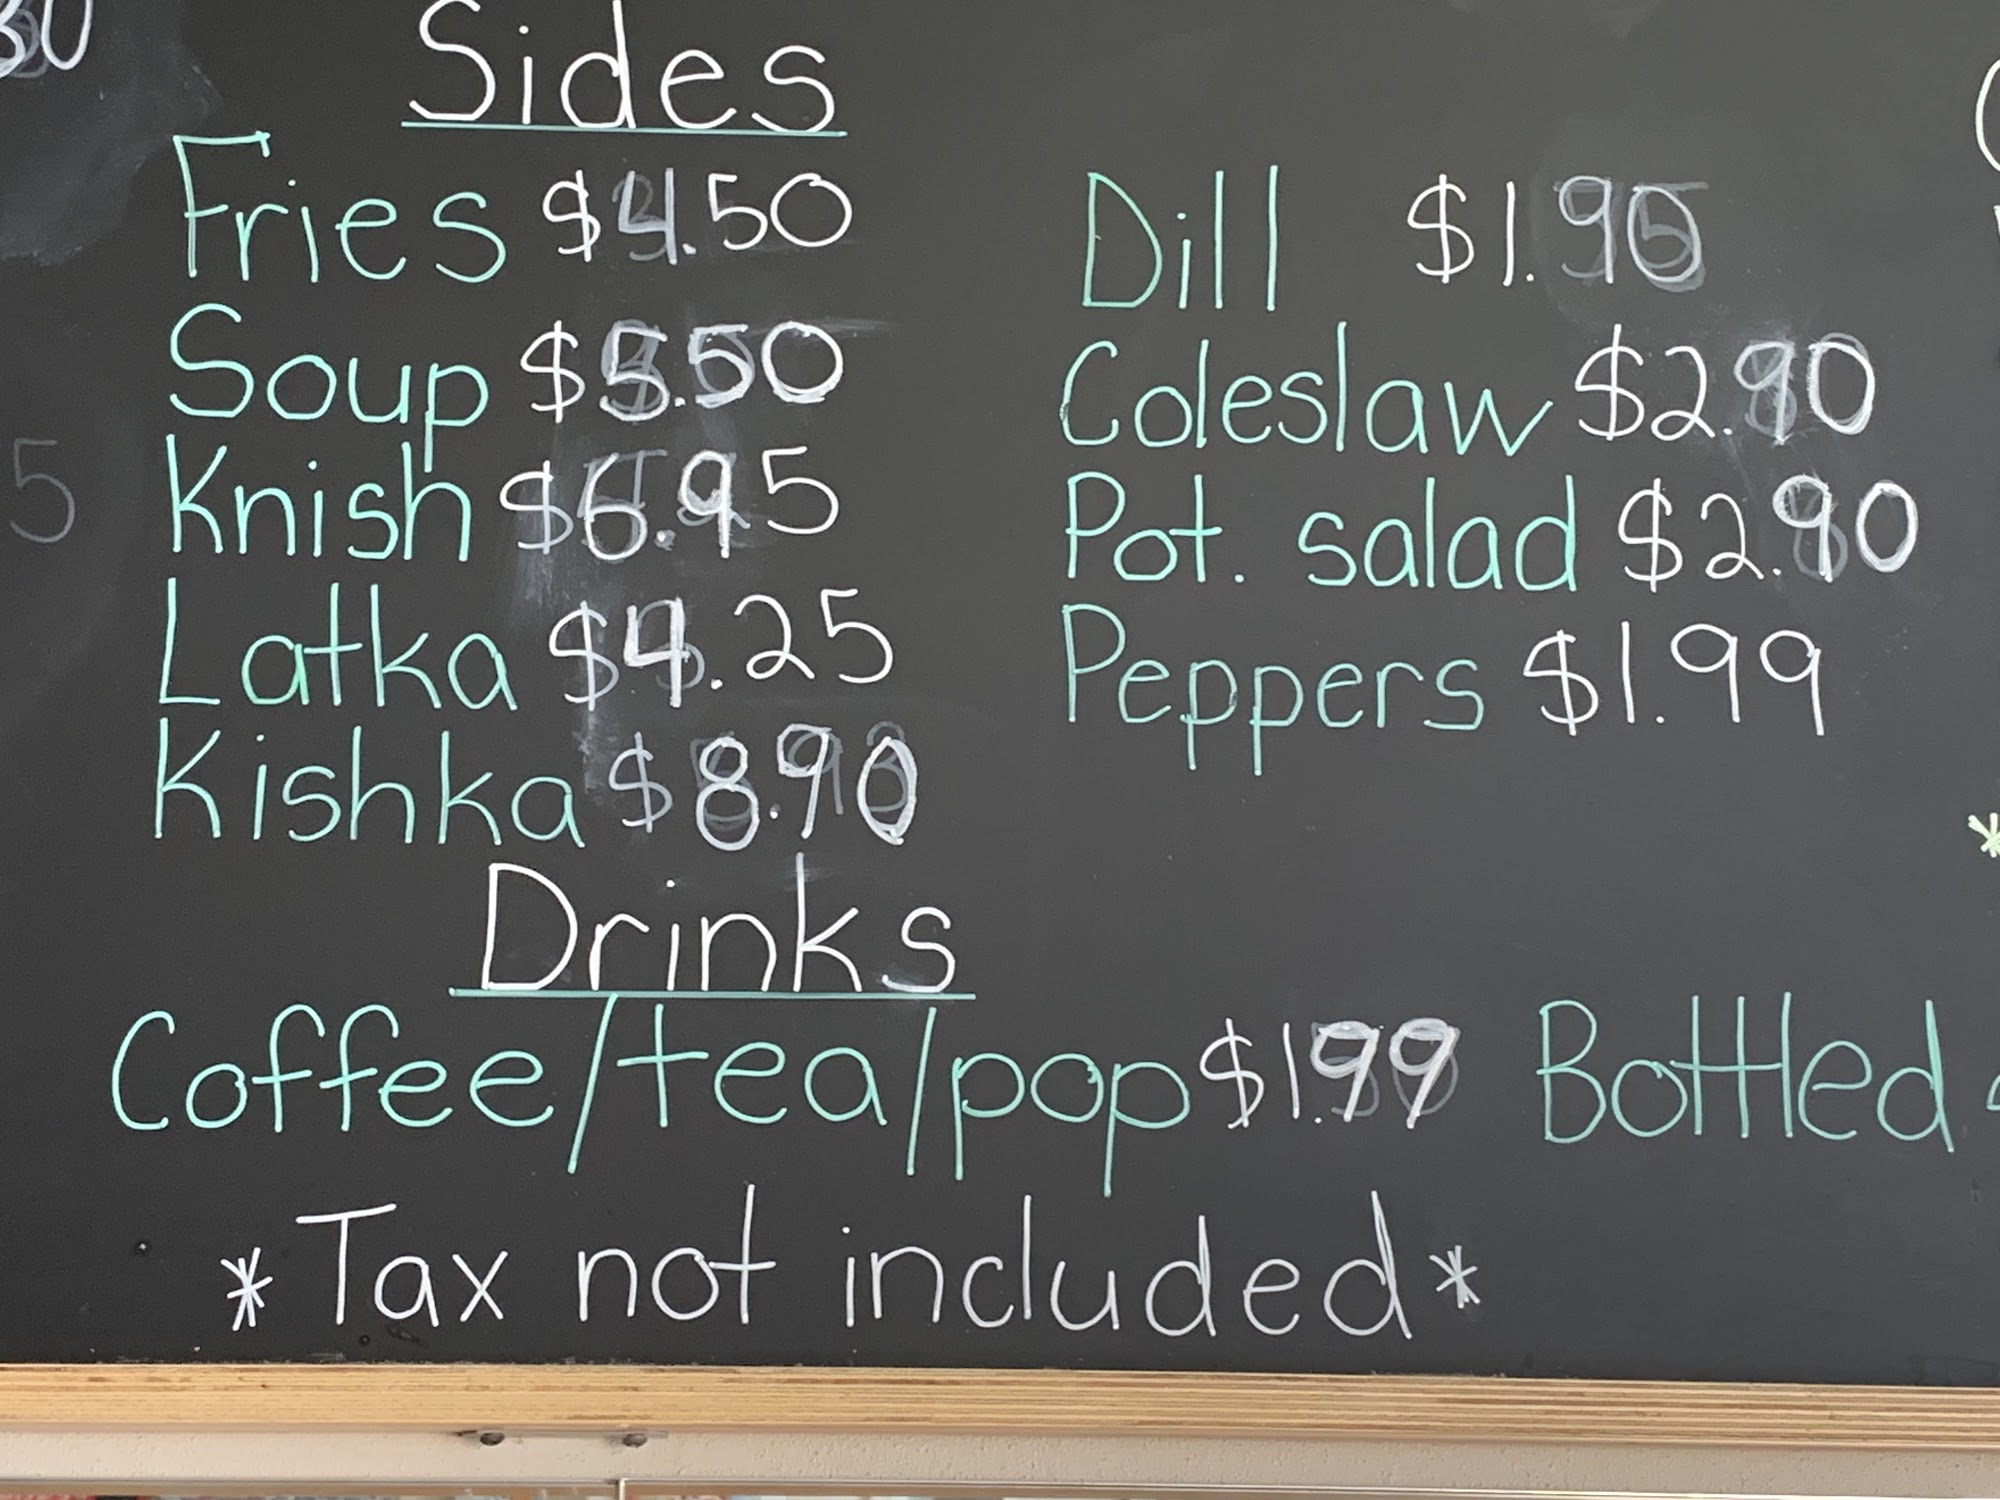 Sides
Fries $4.50
Soup $5.50
Knish $6.95
Latka $4.25
Kishka $8.90
Dill $1.90
Coleslaw $2.90
Pot. salad $2.90
Peppers $1.99
Drinks
Coffee/tea/pop $1.99 Bottled
*Tax not included*